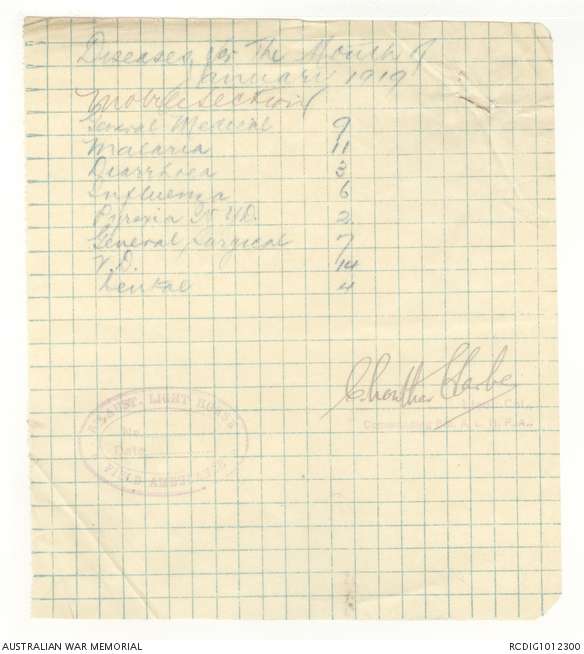 Diseases for The Month of
January 1919
Mobile section
General Medical 9
Malaria 11
Diarrhoea 3
Influenza 6
Pyrexia 2
General Surgical 7
V.D. 14
Dental 4
AUST. LIGHT HORSE
FIELD AMBULANCE
Lieut. Col.,
Commanding A. L. H. F. A.,
AUSTRALIAN WAR MEMORIAL
RCDIG1012300